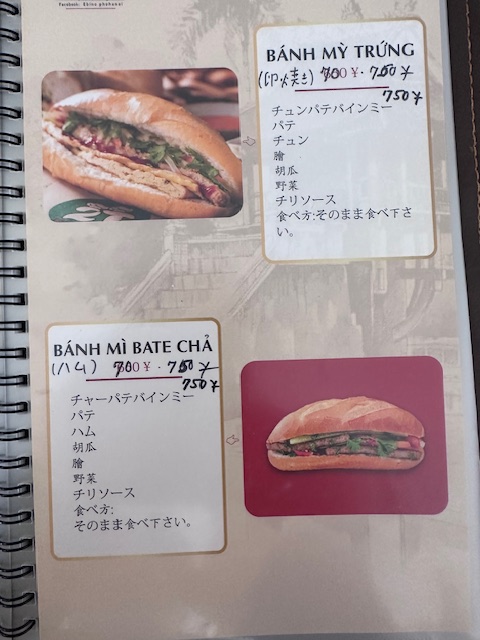 Facebook: Shinq phohanoi
BÁNH MỲ TRỨNG
(卵焼き) 700¥・750¥
750¥
チュンパテバインミー
パテ
チュン
膾
胡瓜
野菜
チリソース
食べ方:そのまま食べ下さ
い。
BÁNH MÌ BATE CHẢ
(ハム) 700¥・750¥
750¥
チャーパテバインミー
パテ
ハム
胡瓜
膾
野菜
チリソース
食べ方:
そのまま食べ下さい。